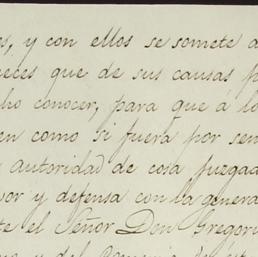 es, y con ellos se somete a
ueces que de sus causas p
ho conocer, para que á lo
en como si fuera por sen
autoridad de cosa juzgad
vor y defensa con la genera
te el Señor Don Gregori